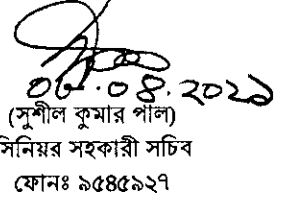 ০৮.০৪.২০২১
(সুশীল কুমার পাল)
সিনিয়র সহকারী সচিব
ফোনঃ ৯৫৪৫৯২৭